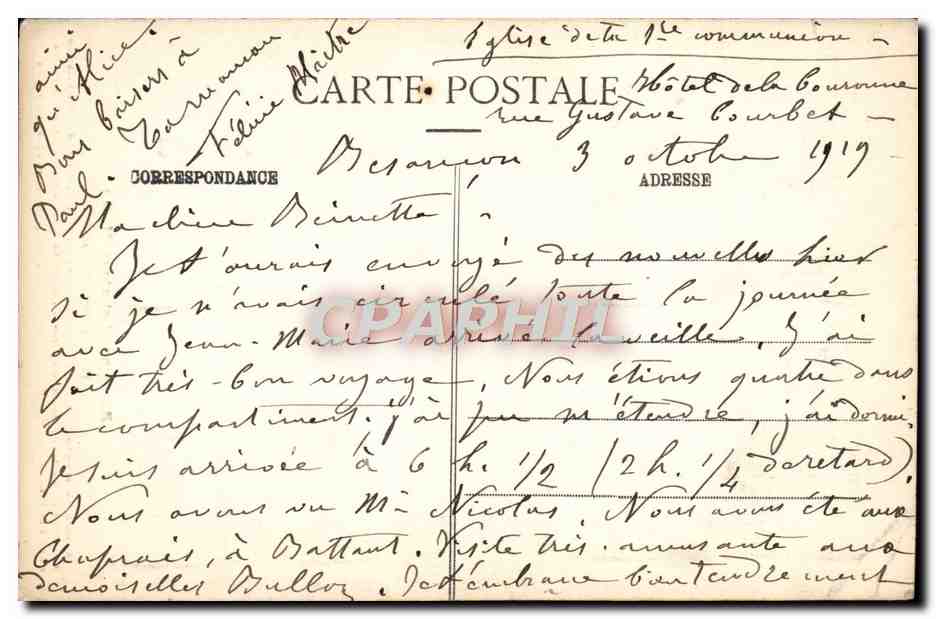 Eglise de la 1re communion -
CARTE POSTALE
Hôtel de la Couronne
rue Gustave Courbet -
Besançon 3 octobre 1919
CORRESPONDANCE
ADRESSE
Ma chère
Je t'aurais envoyé des nouvelles hier
si je n'avais circulé toute la journée
avec Jean-Marie arrivé la veille. J'ai
fait très-bon voyage. Nous étions quatre dans
le compartiment. j'ai pu m'étendre, j'ai dormi.
Je suis arrivée à 6 h. 1/2 (2 h. 1/4 de retard).
Nous avons vu Mr Nicolas. Nous avons été aux
Chaprais, à Battant. Visite très amusante aux
demoiselles Bulloz. Je t'embrasse bien tendrement
ainsi
qu'Alice.
Bons baisers à
Paul.
CPAPHIL